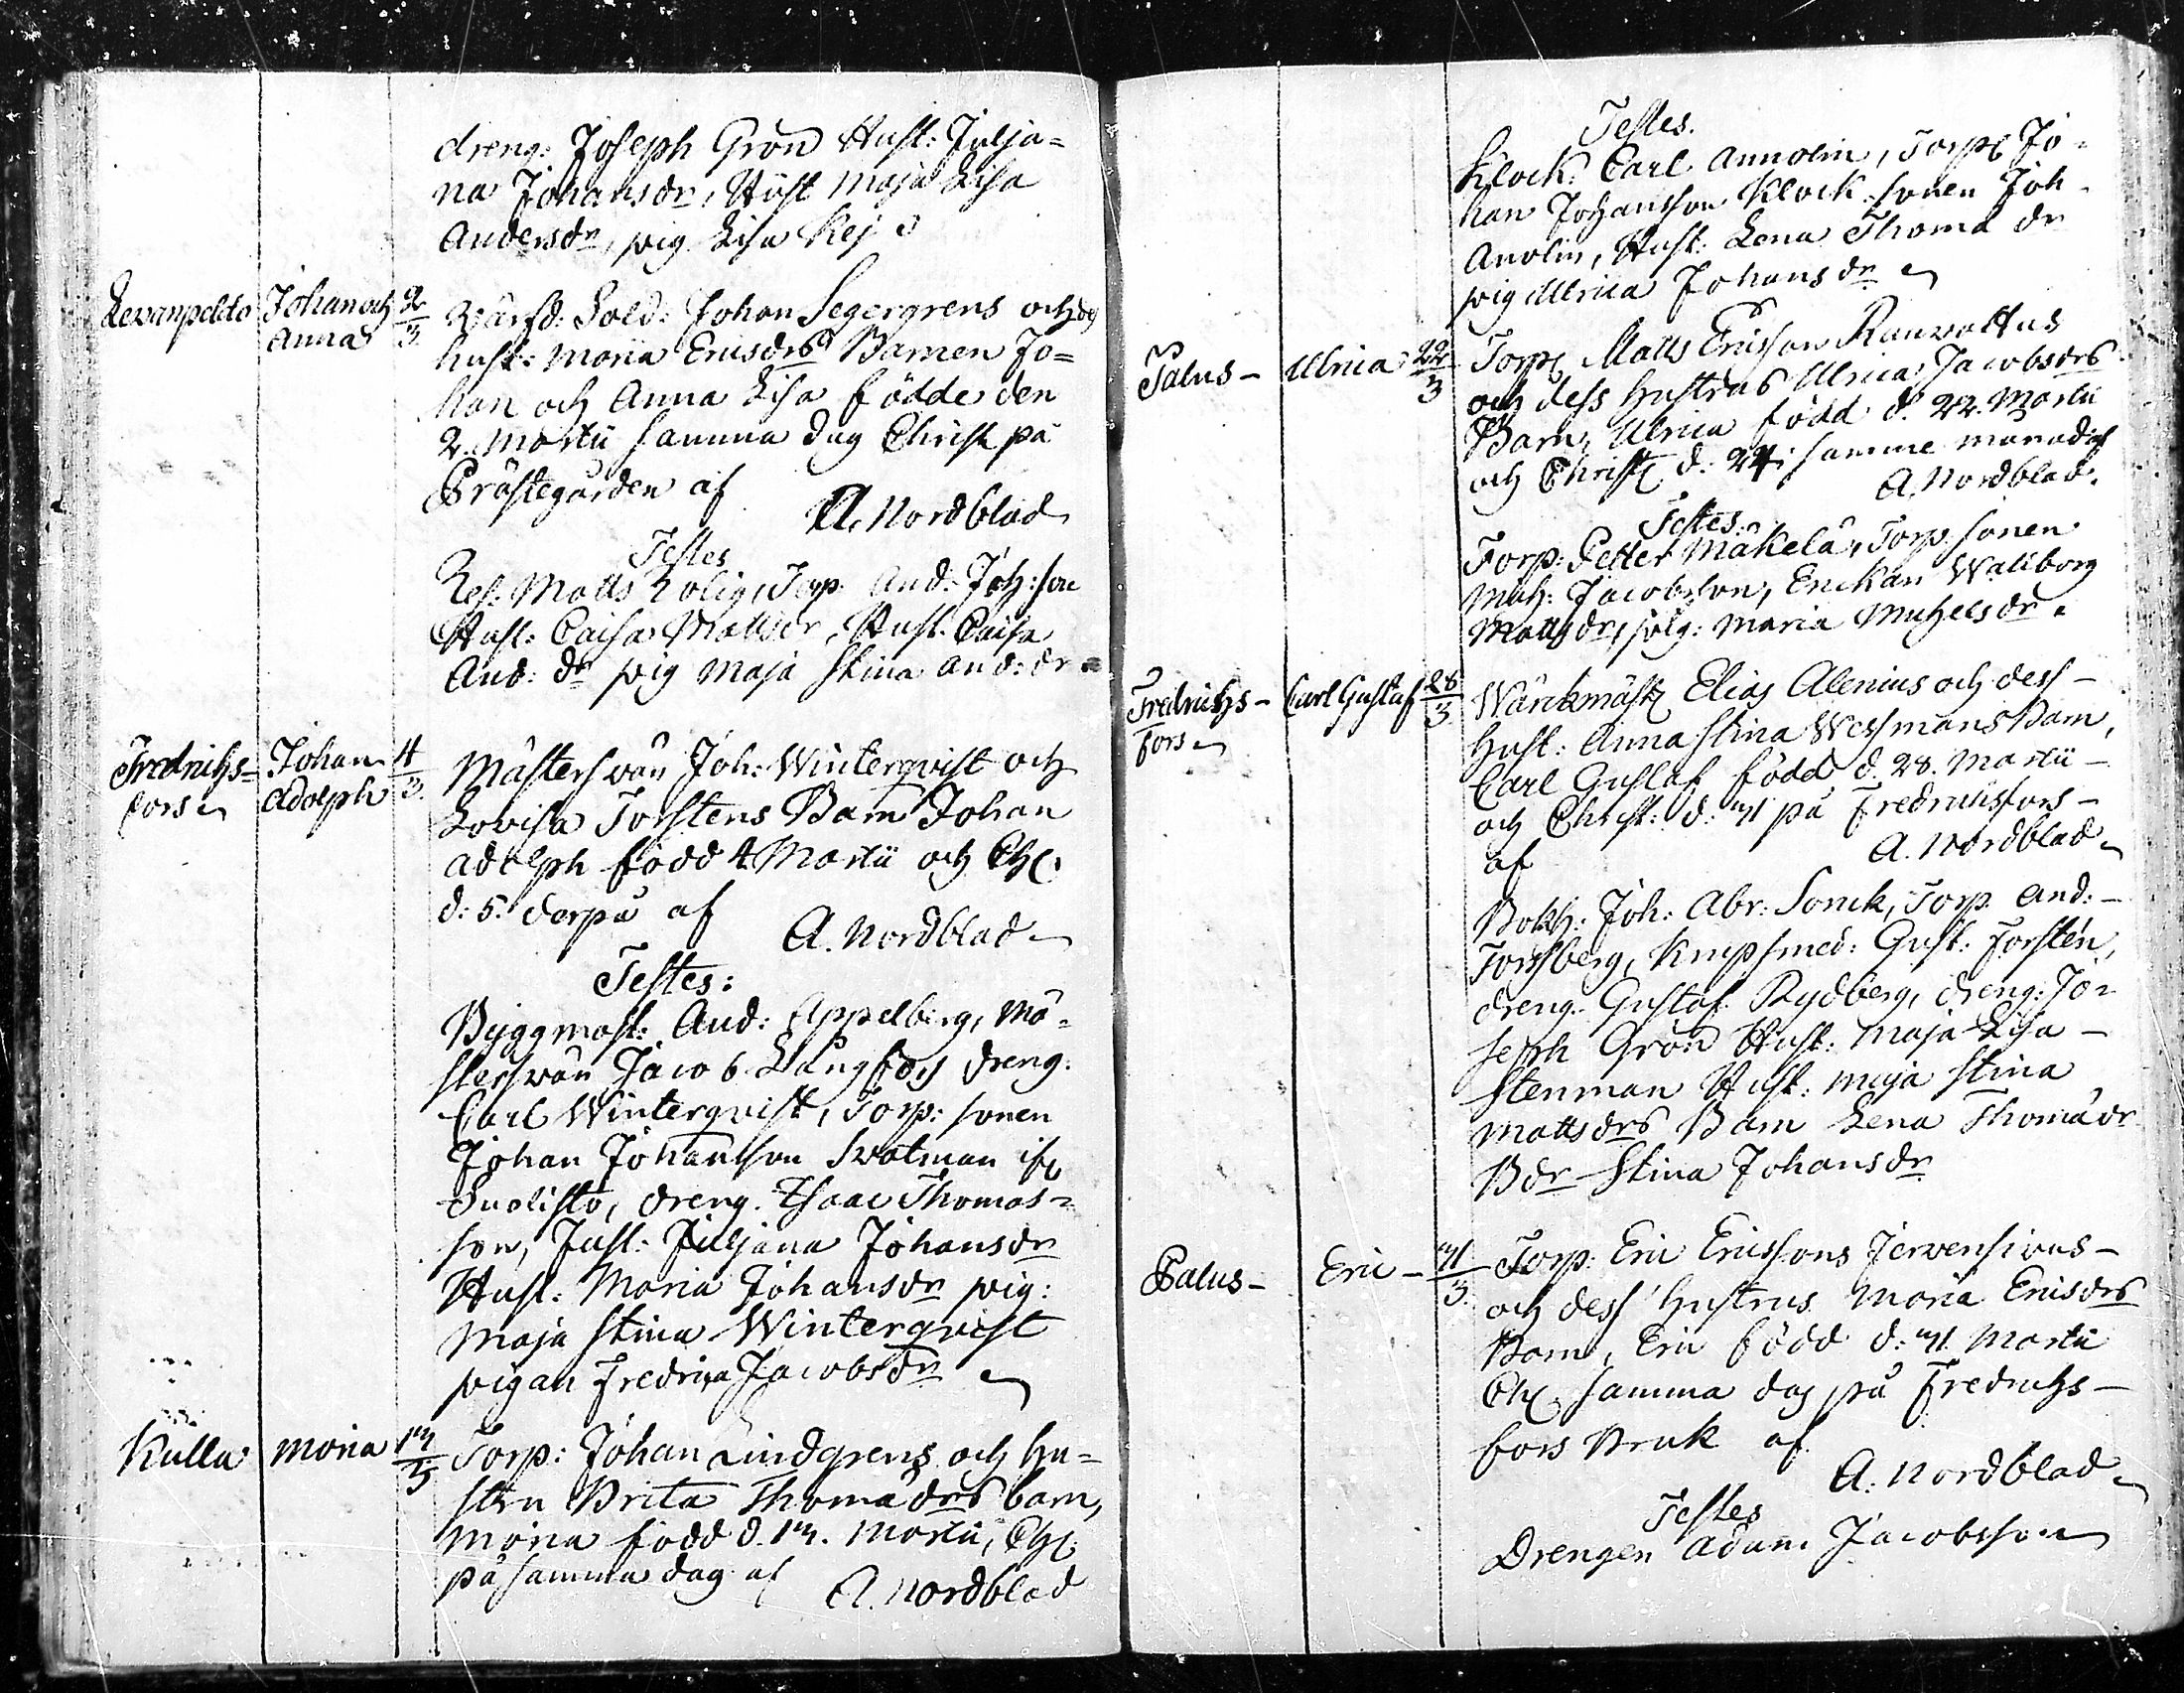 dreng: Joseph Grön Hust: Julja=
na Johansdr, Hust Maja Lisa
Andersdr, pig Lisa Kej
Levanpelda Johan och Anna 2/3 Värfd: Sold: Johan Segergrens och dess
hust: Maria Ericsdrs Barnen Jo=
han och Anna Lisa födde den
2. Martii samma dag Christ på
Prästegården af
A. Nordblad
Testes
Res. Matts Rolig, Torp. And: Joh:son
Hust: Caisa Mattsdr, Hust. Caisa
And: dr pig Maja Stina And: dr
Fredrichs=fors Johan Adolph 4/3 Mästersvän Joh: Winterqvist och
Lovisa Torstens Barn Johan
Adolph född 4 Martii och Chr
d: 5. derpå af
A. Nordblad
Testes:
Byggmäst: And: Appelberg, Mä=
stersvän Jacob Långfors dreng:
Carl Winterqvist, Torp: sonen
Johan Johansson Svatman
Suolisto, dreng. Isaac Thomas=
son, Hust: Juljana Johansdr
Hust: Maria Johansdr pig:
Maja Stina Winterqvist
pigan Fredrica Jacobsdr
Kulla Maria 17/3 Torp: Johan Lindgrens och Hu=
stru Brita Thomædrs barn,
Maria född d. 17. Martii, Chr
på samma dag af
A. Nordblad
Testes.
Klock: Carl Annolin, Torp Jo=
han Johansson Klock. sonen Joh
Anolin, Hust: Lena Thomæ dr
pig Ulrica Johansdr
Palus - Ulrica 22/3 Torp Matts Ericsson Rauvattus
och dess hustrus Ulrica Jacobsdrs
Barn, Ulrica född d. 22. Martii
och Christ d: 24 i samme månad af
A. Nordblad.
Testes:
Torp: Petter Mäkelä, Torp. sonen
Mich: Jacobsson, Enckan Wallborg
Mattsdr, pig: Maria Michelsdr.
Fredrichs-fors Carl Gustaf 28/3 Wärckmäst Elias Alenius och dess -
Hust: Anna Stina Wessmans Barn,
Carl Gustaf född d. 28. Martii -
och Christ: d: 31 på Fredrichsfors -
af
A. Nordblad
Bokh: Joh: Abr: Sonck, Torp. And: -
Forssberg, Knipsmed: Gust: Forstén,
dreng. Gustaf Rydberg, dreng: Jo=
seph Grön Hust: Maja Lisa -
Stenman Hust: Maja Stina
Mattsdrs Barn Lena Thomædr
Bdr Stina Johansdr
Palus - Eric - 31/3 Torp: Eric Ericssons Jervensivus -
och dess hustrus Maria Ericsdrs
Barn, Eric född d: 31 Martii
Chr samma dag på Fredrichs -
fors Bruk af
A. Nordblad
Testes
Drengen Adam Jacobsson